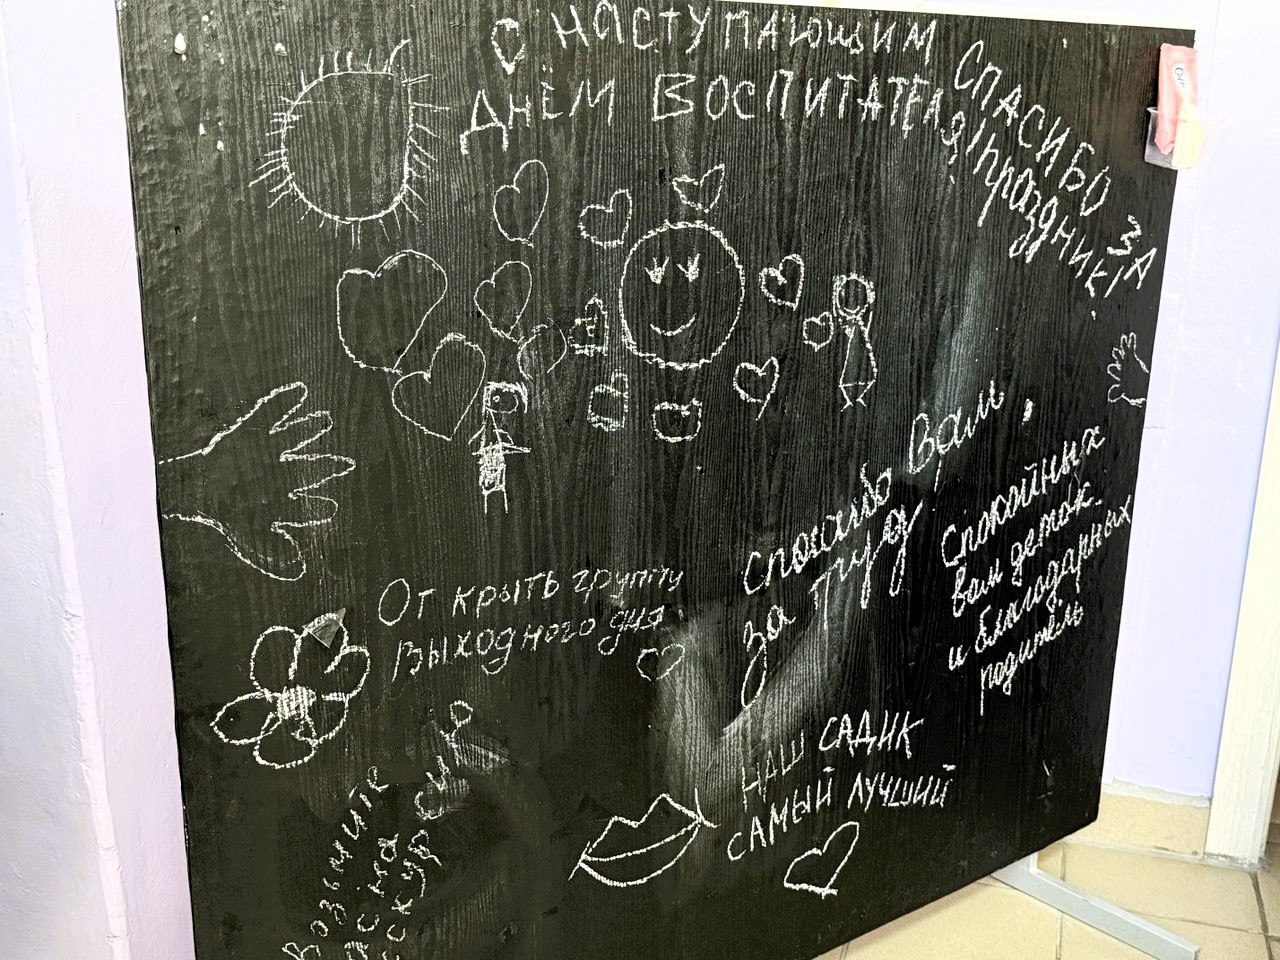 С НАСТУПАЮЩИМ
ДНЁМ ВОСПИТАТЕЛЯ!
СПАСИБО ЗА
праздник!
спасибо Вам
за труд
Спокойных
вам деток
и благодарных
родитель
От крыть группу
выходного дня
НАШ САДИК
САМЫЙ ЛУЧШИЙ
Возьмите